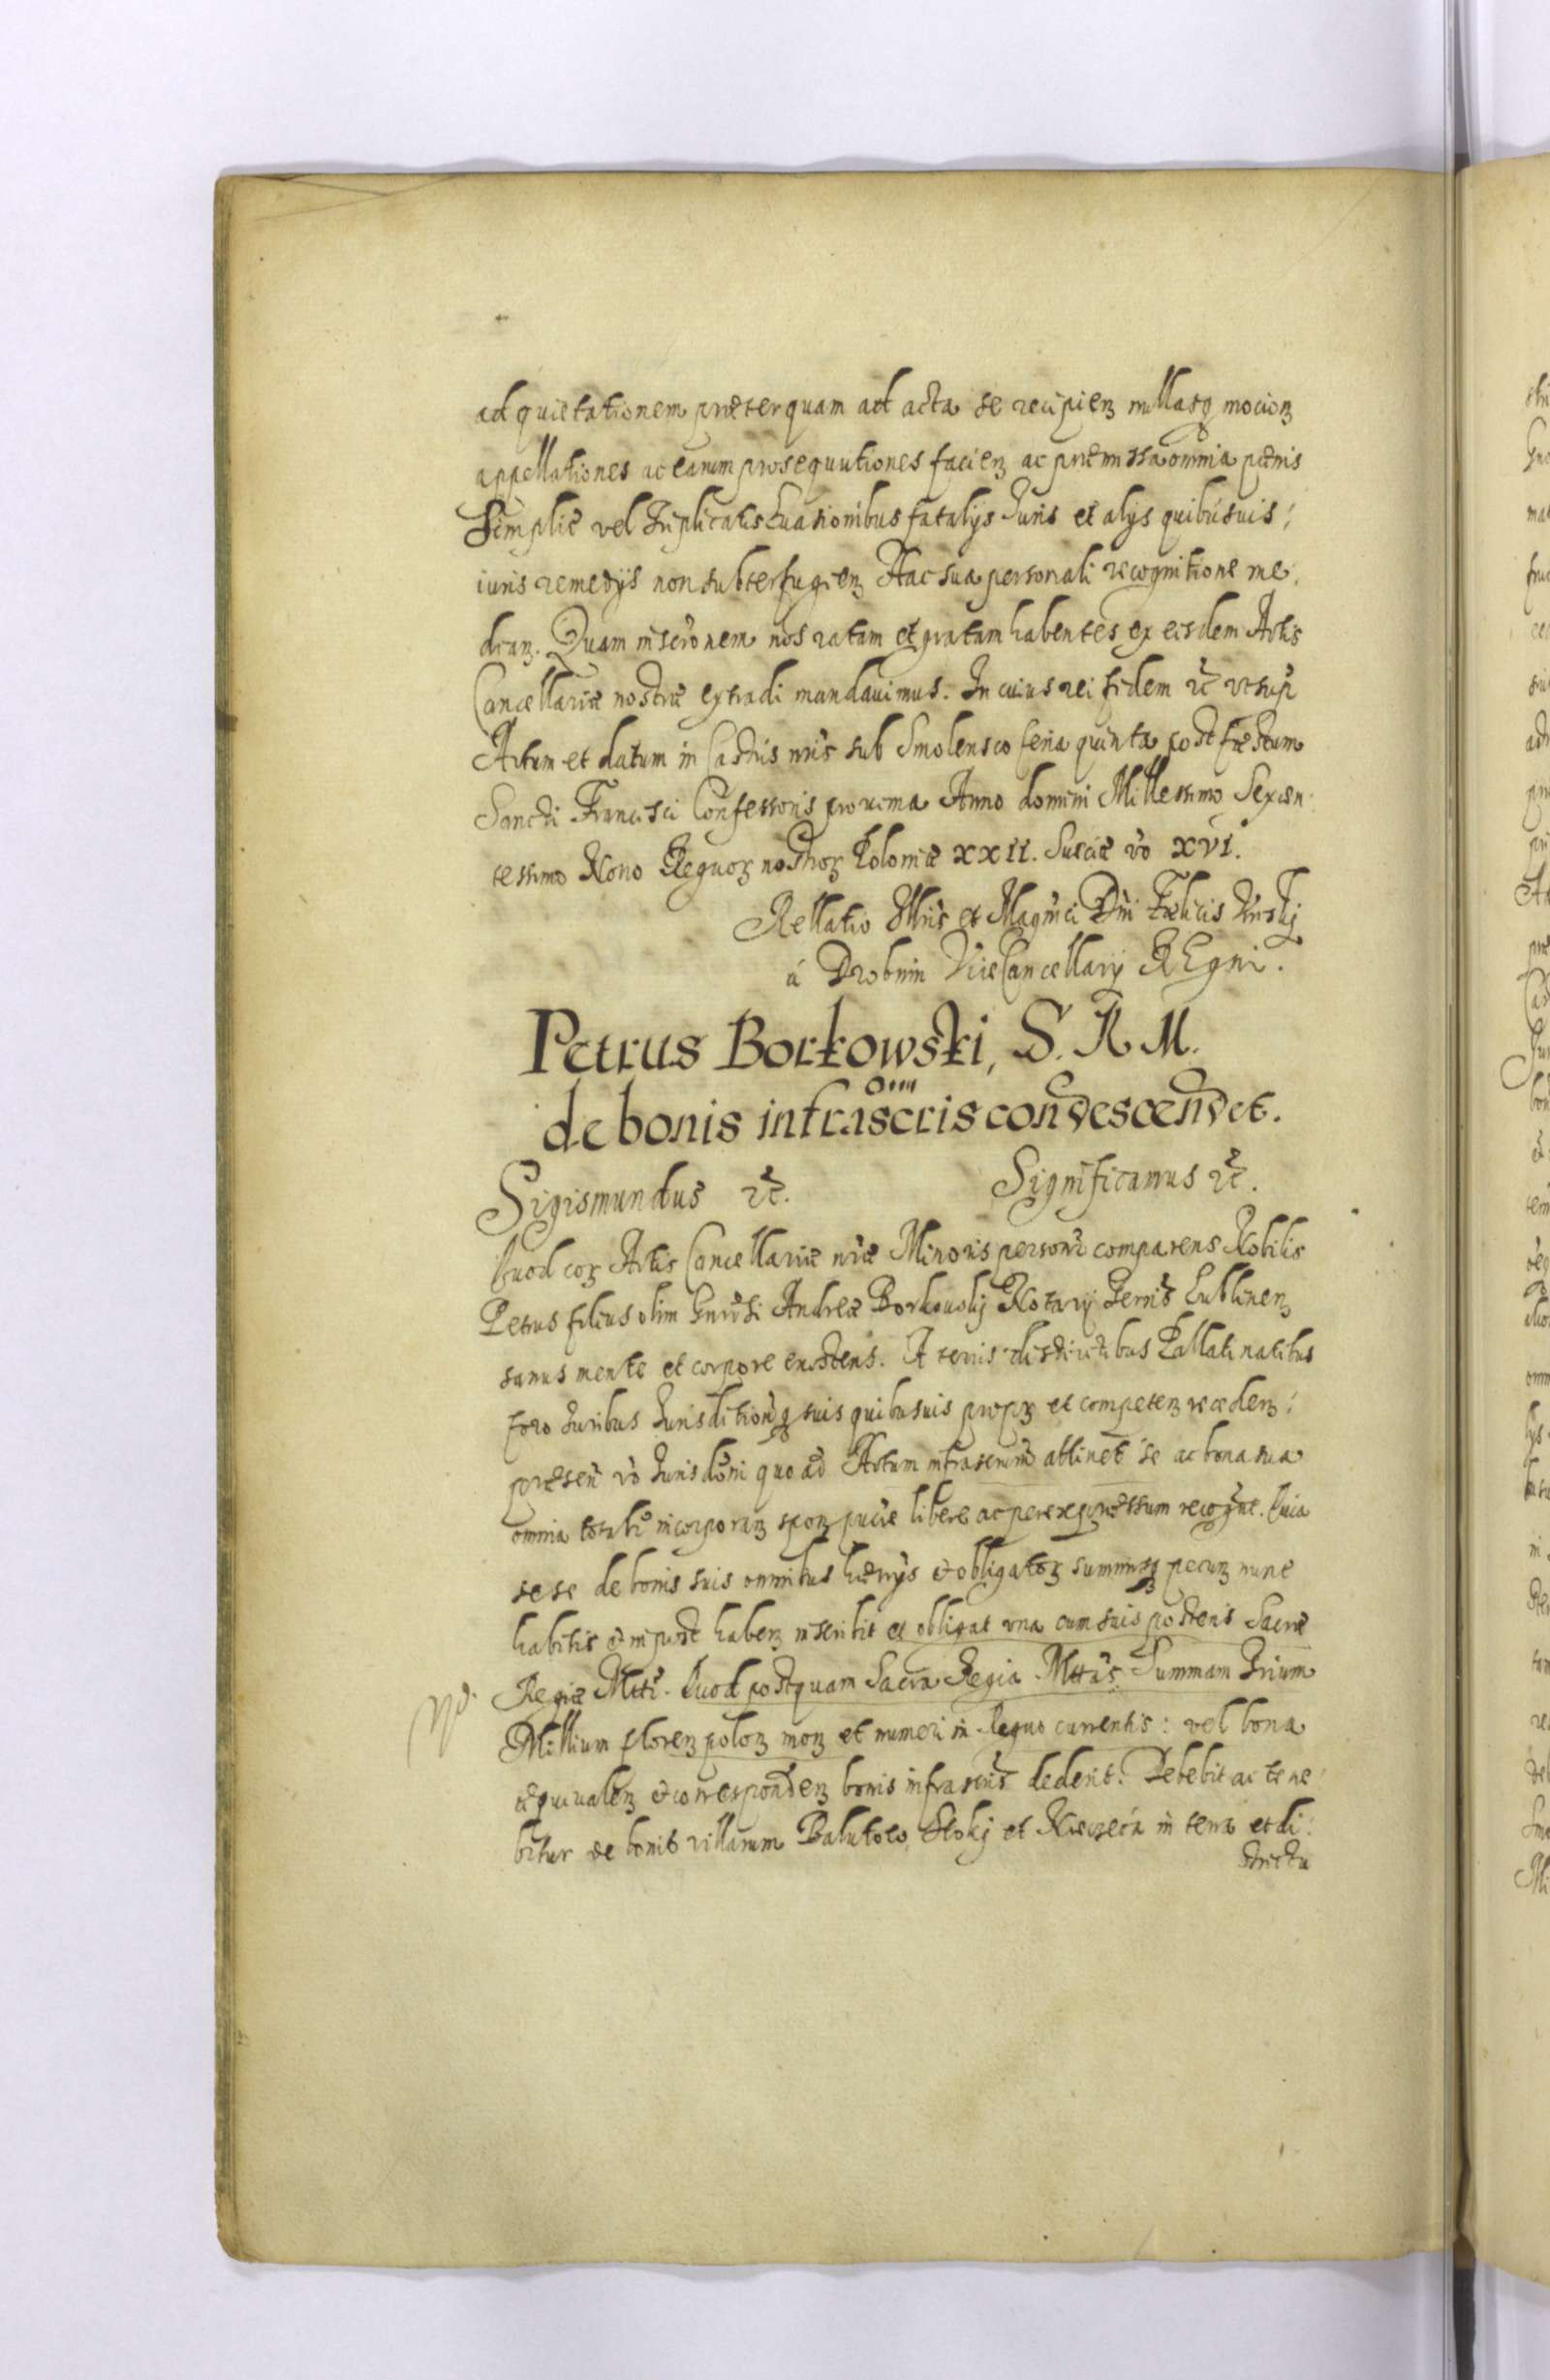 ad quietationem præterquam ad acta se recipien nullasq mocion
appellationes ac earum prosequutiones facien ac præmissa omnia pœnis
Simplic vel Triplicatis Euasionibus fatalijs Juris et alijs quibusuis
iuris remedijs non subterfugien Hac sua personali recognitione me
dian. Quam inscrōnem nos ratam et gratam habentes ex eisdem Actis
Cancellariæ nostræ extradi mandauimus. In cuius rei fidem &c vt sup
Actum et datum in Castris nrīs sub Smolensco feria quinta post festum
Sancti Francisci Confessoris proxima Anno domini Millesimo Sexcen
tesimo Nono Regnor nostror Poloniæ XXII. Sueciæ vō XVI.
Rellatio Illris et Magnci Dni Fælicis Krÿskj
á Drobnin ViceCancellarij REgni.
Petrus Borkowski, S. R M.
de bonis infrascris condescendet.
Sigismundus &c. Significamus &c.
Quod cor Actis Cancellariæ nræ Minoris person comparens Nobilis
Petrus filius olim Gnrosi Andreæ Borkouskj Notarij Terris Lublinen
sanus mente et corpore existens. A terris districtibus Pallatinatibus
foro Juribus Jurisdictionq suis quibusuis propr et competen receden
præsen vō Jurisdōni quo ad Actum infrascrim attinet se ac bona sua
omnia totalr incorporan spon pure libere ac per expressum recogne. Quia
sese de bonis suis omnibus hærijs & obligator summisq pecun nunc
habitis & inpost haben inscribit et obligat vna cum suis posteris Sacræ
Regiæ Mtti. Quod postquam Sacra Regia Mttas Summam Trium
Millium floren polon mon et numeri in Regno currentis: vel bona
æquiualen & corresponden bonis infrascris dederit. Debebit ac tene
bitur de bonis villarum et in terra et di
strictu